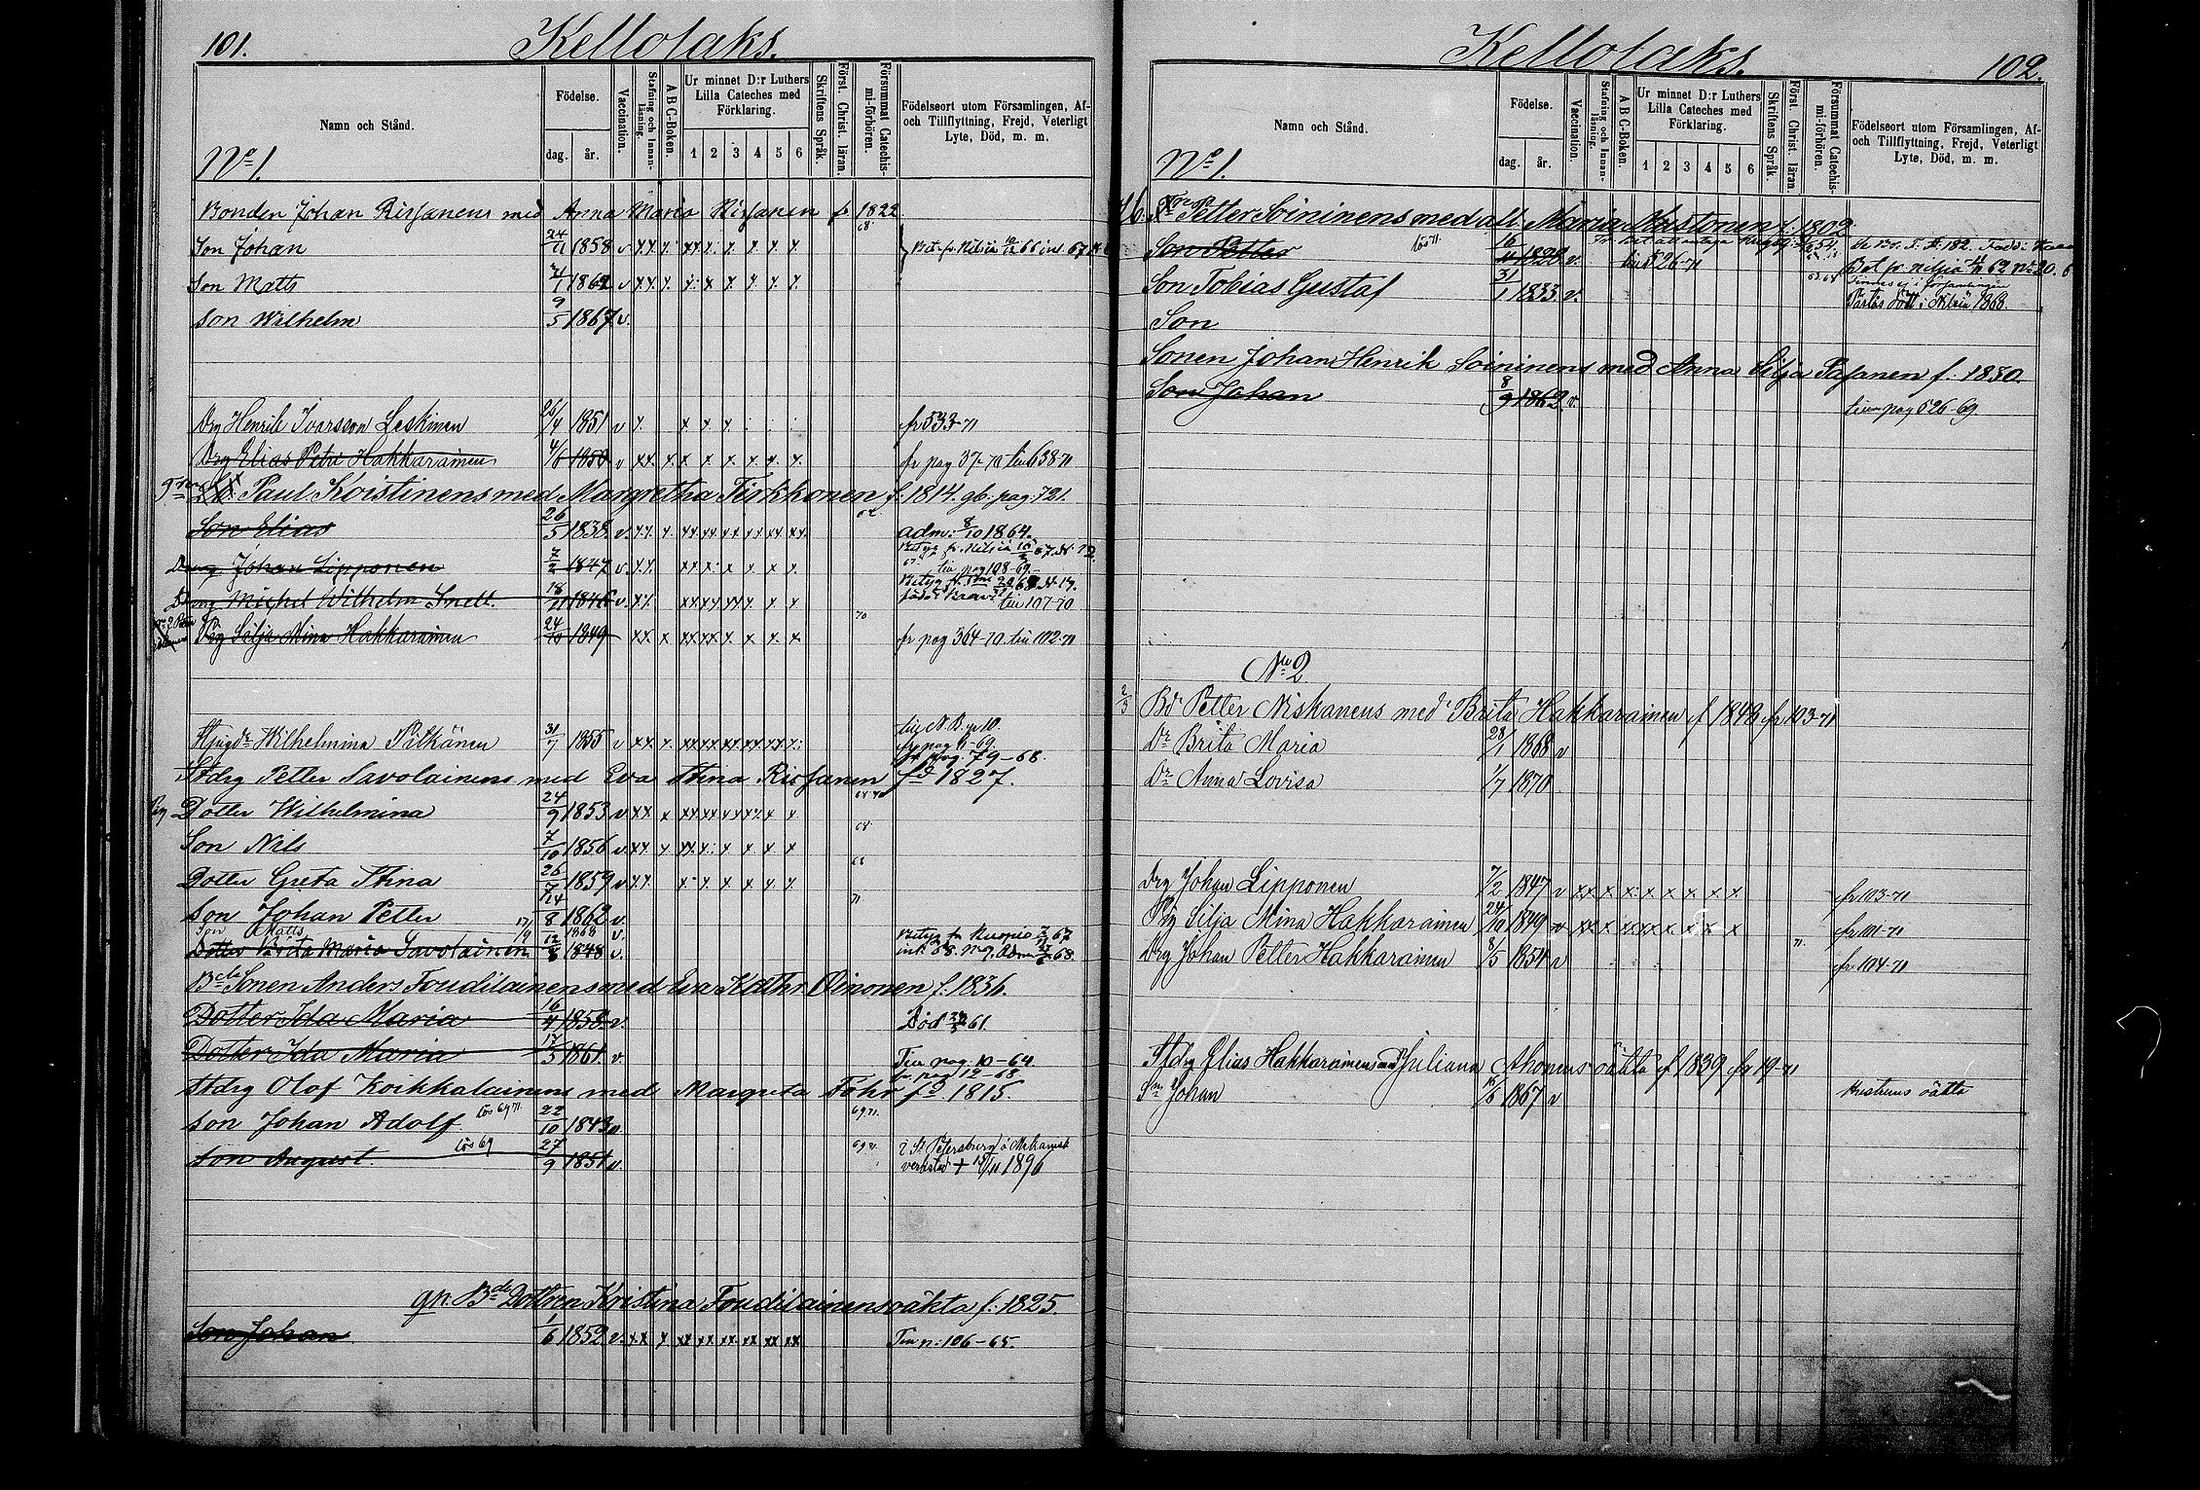 101. Kellolaks.
Namn och Stånd.
Födelse.
dag. år.
Vaccination.
Stafning och Innanläsning.
A B C-Boken.
Ur minnet D:r Luthers Lilla Cateches med Förklaring.
1 2 3 4 5 6
Skriftens Språk.
Först. Christ. läran.
Försummat Catechismi-förhören.
Födelseort utom Församlingen, Af- och Tillflyttning, Frejd, Veterligt Lyte, Död, m. m.
No 1.
Bonden Johan Rissanens med Anna Maria Rissanen f. 1822
Son Johan 24/11 1858 v
Son Matts 4/1 1862 v
Son Wilhelm 9/5 1867 v.
Drg Henrik Ivarsson Leskinen 26/4 1851 v fr 533-71
Drg Elias Petri Hakkarainen 4/6 1850 v fr pag 37-70 till 638-71
Paul Koistinens med Margretha Tirkkonen f. 1814. gb. pag. 721.
Son Elias 26/5 1838 v. adm: 8/10 1864.
Dreng Johan Lipponen 7/2 1847 v. till pag 108-69.
Dreng Michel Wilhelm Snell v. till 107-70
Pig Silja Mina Hakkarainen 24/10 1849 fr pag 364-70 till 102-71
Wilhelmina Pitkänen 31/7 1855 v fr pag 11-69.
fr pag. 79-68.
Stdrg Petter Savolainens med Eva Stina Rissanen fd 1827.
Dotter Wilhelmina 24/9 1853 v
Son Nils 7/10 1856 v.
Dotter Greta Stina 26/7 1859 v
Son Johan Petter 14/8 1862 v.
Son Matts 17/9 1868 v.
Dotter Brita Maria Savolainen 1848 v. Betyg fr Kuopio
Bde Sonen Anders Foudilainens med Eva Kathr. Oinonen f. 1836.
Dotter Ida Maria 16/4 1858. v. Död 61.
Dotter Ida Maria 17/5 1861. v. Till pag. 10-64
fr. pag 12-68.
Stdrg Olof Koikkalainens med Margreta Föhr fd 1815.
Son Johan Adolf lös 69 71. 22/10 1843 v.
Son August. lös 69 27/9 1851 v. i St. Petersburg å Mekanisk
verkstad + 1896
gp. Bde Dottren Kristina Foudilainens oäkta f: 1825.
Son Johan 1/6 1852 v. Till p: 106-65.
Kellolaks. 102.
Namn och Stånd.
Födelse.
dag. år.
Vaccination.
Stafning och Innanläsning.
A B C-Boken.
Ur minnet D:r Luthers Lilla Cateches med Förklaring.
1 2 3 4 5 6
Skriftens Språk.
Först. Christ. läran.
Försummat Catechismi-förhören.
Födelseort utom Församlingen, Af- och Tillflyttning, Frejd, Veterligt Lyte, Död, m. m.
No 1.
Petter Soininens med att Maria Mustonen f. 1802
Son Petter lös 71. 16 1828 v. till 526-71
Son Tobias Gustaf 31/1 1833 v.
Son
Sonen Johan Henrik Soininens med Anna Silja Pasanen f. 1830.
Son Johan 8/9 1862. v. till pag 526-69.
No 2
Bd Petter Niskanens med Brita Hakkarainen f 1849 fr 103-71
Dr Brita Maria 28/1 1868 v
Dr Anna Lovisa 1/7 1870
Drg Johan Lipponen 7/2 1847 v fr 103-71
Pig Silja Mina Hakkarainen 24/10 1849 v fr 101-71
Drg Johan Petter Hakkarainen 8/5 1854 v fr 104-71
Stdrg Elias Hakkarainens med Juliana Ahonens oäkta f 1839 fr 19-71
Sn Johan 1867 v hustruns oäkta